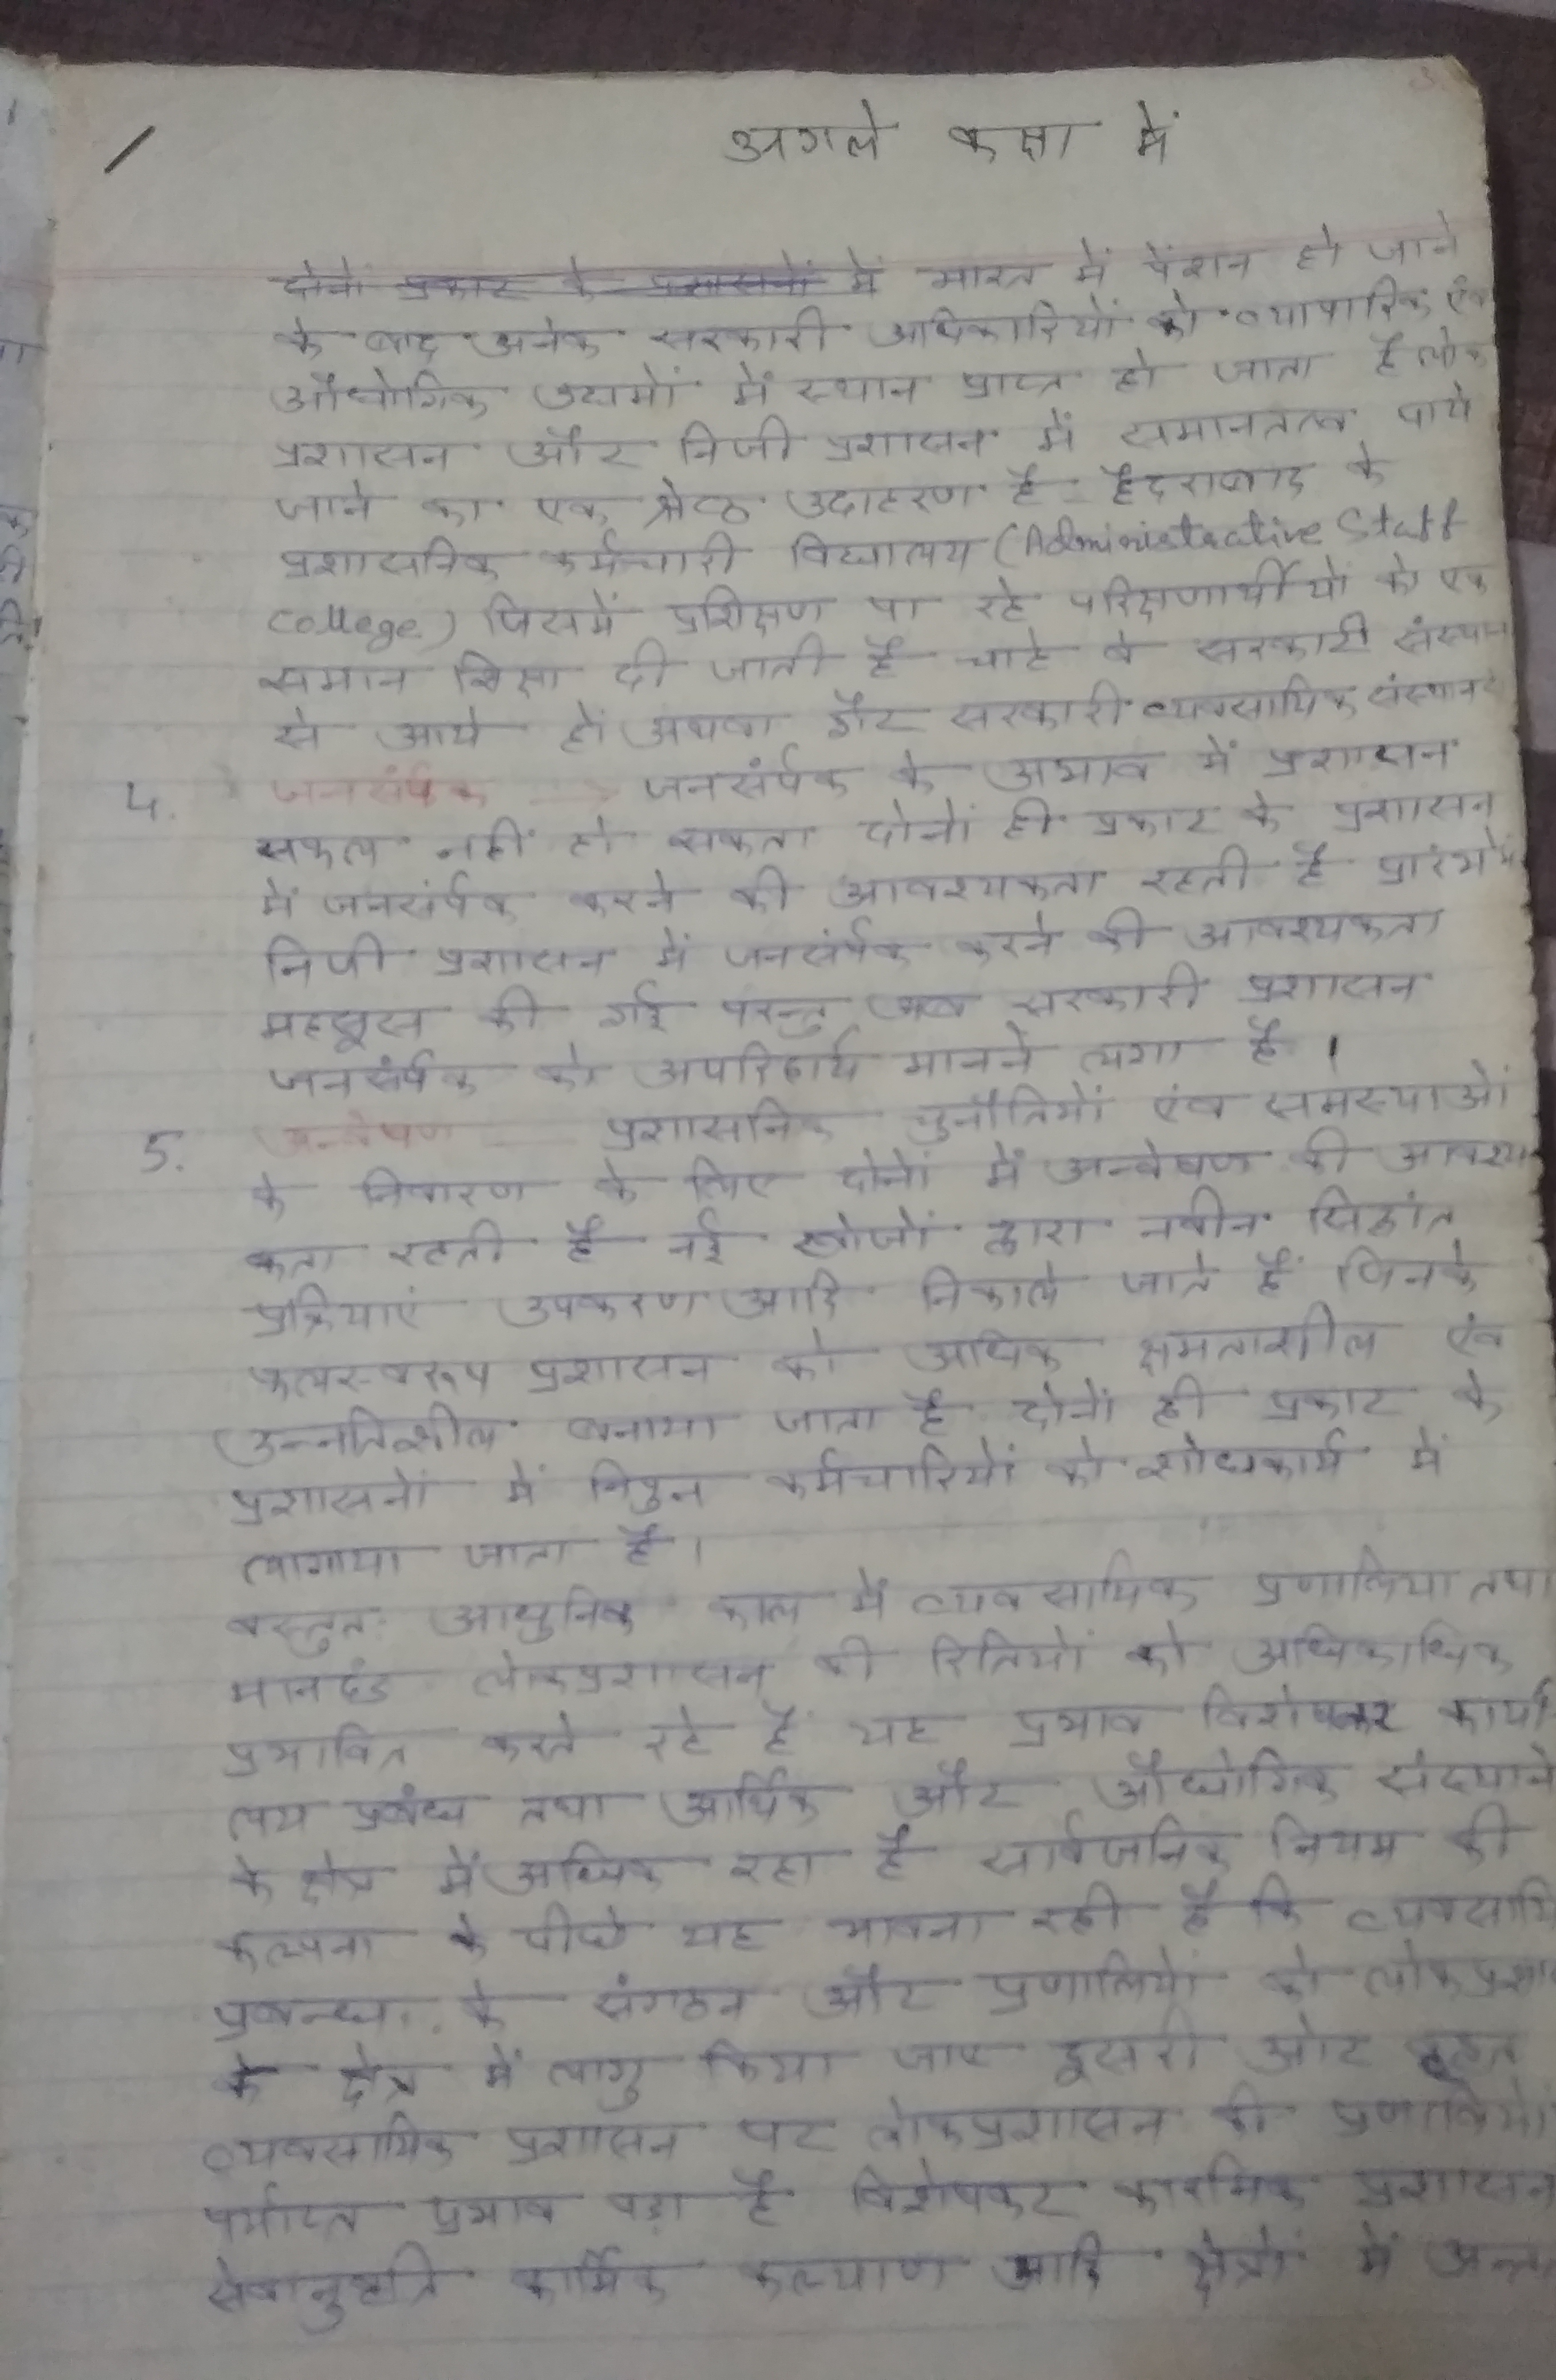 अगले कक्षा में
दोनों प्रकार के प्रशासनों में भारत में पेंशन हो जाने
के बाद अनेक सरकारी अधिकारियों को व्यापारिक एंव
औधोगिक उद्यमों में स्थान प्राप्त हो जाता है लोक
प्रशासन और निजी प्रशासन में समानतत्व पाये
जाने का एक श्रेष्ठ उदाहरण है हैदराबाद के
प्रशासनिक कर्मचारी विद्यालय (Administrative Staff
College) जिसमें प्रशिक्षण पा रहे परिक्षणार्थीयों को एक
समान शिक्षा दी जाती है चाहे वे सरकारी संस्थान
से आये हों अथवा गैर सरकारी व्यवसायिक संस्थान से
4. जनसंर्पक → जनसंर्पक के अभाव में प्रशासन
सफल नहीं हो सकता दोनों ही प्रकार के प्रशासन
में जनसंर्पक करने की आवश्यकता रहती है प्रारंभ में
निजी प्रशासन में जनसंर्पक करने की आवश्यकता
महसूस की गई परन्तु अब सरकारी प्रशासन
जनसंर्पक को अपरिहार्य मानने लगा है ।
5. अन्वेषण — प्रशासनिक चुनौतियों एंव समस्याओं
के निवारण के लिए दोनों में अन्वेषण की आवश्य
कता रहती है नई खोजों द्वारा नवीन सिद्धांत
प्रक्रियाएं उपकरण आदि निकाले जाते हैं जिनके
फलस्वरूप प्रशासन को अधिक क्षमताशील एंव
उन्नतिशील बनाया जाता है दोनों ही प्रकार के
प्रशासनों में निपुन कर्मचारियों को शोधकार्य में
लागाया जाता है ।
वस्तुतः आधुनिक काल में व्यवसायिक प्रणालिया तथा
मानदंड लोकप्रशासन की रितियों को अधिकाधिक
प्रभावित करते रहे हैं यह प्रभाव विशेषकर कार्या
लय प्रबंध तथा आर्थिक और औधोगिक संस्थाने
के क्षेत्र में अधिक रहा है सार्वजनिक नियम की
कल्पना के पीछे यह भावना रही है कि व्यवसायि
प्रबन्ध के संगठन और प्रणालियों को लोकप्रशा
के क्षेत्र में लागु किया जाए दूसरी ओर वृहत
व्यवसायिक प्रशासन पर लोकप्रशासन की प्रणालियों
पर्याप्त प्रभाव पड़ा है विशेषकर कारमिक प्रशासन
कार्मिक कल्याण आदि क्षेत्रों में